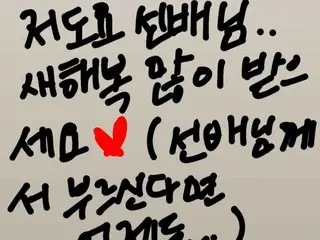 저도요 선배님..
새해복 많이 받으
세요 ♥ (선배님께
서 부르신다면
언제든...)